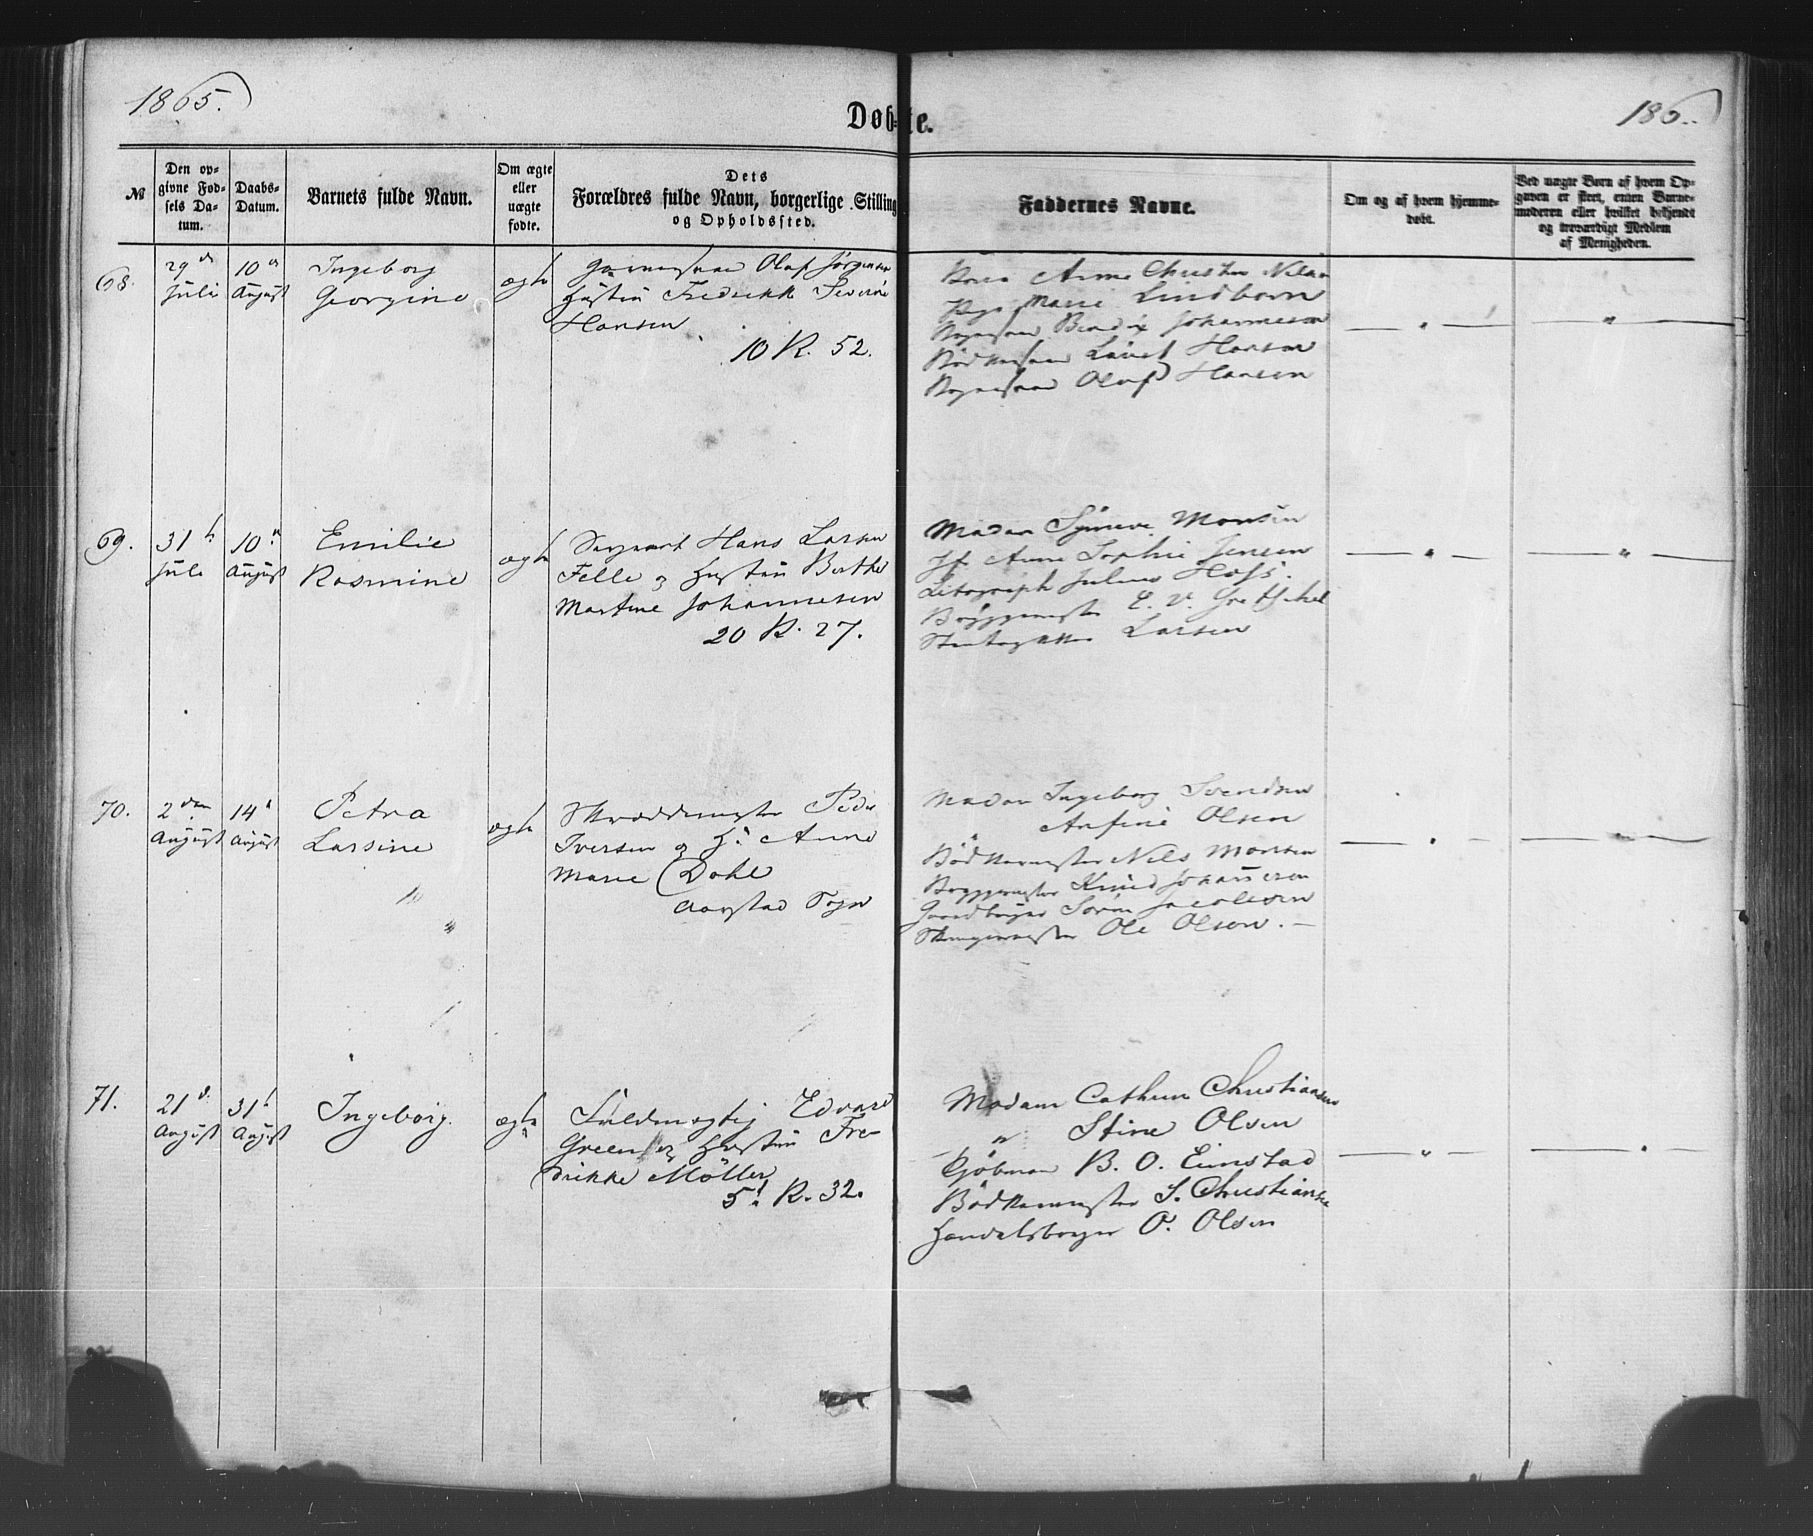 1865.
186..
Døbte.
№
Den opgivne Fødsels Datum.
Daabs-Datum.
Barnets fulde Navn.
Om ægte eller uægte fødte.
Dets Forældres fulde Navn, borgerlige Stilling og Opholdssted.
Faddernes Navne.
Om og af hvem hjemmedøbt.
Ved uægte Børn af hvem Opgaven er skeet, enten Barnemoderen eller hvilket bekjendt og troværdigt Medlem af Menigheden.
68.
29de Juli
10de August
Ingeborg
Georgine
ægte
Olaf Jørgensen
Hustru Fredrikke Severine
Hansen
10 R. 52.
Anne Christine Nilsen
Pige Marie Lindborn
Bendix Johannesen
Lauritz Hansen
Olaf Hansen
69.
31te Juli
10de August
Emilie
Rasmine
ægte
Sergeant Hans Larsen
Felle og Hustru Berthe
Martine Johannesen
20 R. 27.
Madam Synneve Monsen
Jf. Anne Sophie Jensen
Litograph Julius Hoff.
E. V.
Larsen
70.
2den August
14de August
Petra
Larsine
ægte
Skræddermester Peder
Iversen og H. Anne
Marie Dahl
Aarstad Sogn
Madam Ingeborg Svendsen
Olsen
Bødkermester Nils Monsen
Bryggemester Knud Johannesen
Søren Jacobsen
Ole Olsen.
71.
21de August
31te August
Ingeborg.
ægte
Fuldmægtig Edvard
Green og Hustru Fre-
drikke Møller
5! R. 32.
Madam Cathrine Christiansen
" Stine Olsen
Kjøbman B. O. Einstad
Bødkermester S. Christiansen
Handelsborger O. Olsen